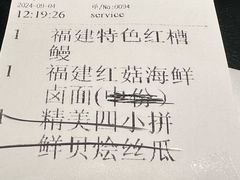 2024-09-04 单/No:0094
12:19:26 service
1 福建特色红糟
鳗
1 福建红菇海鲜
卤面(中份)
1 精美四小拼
鲜贝烩丝瓜